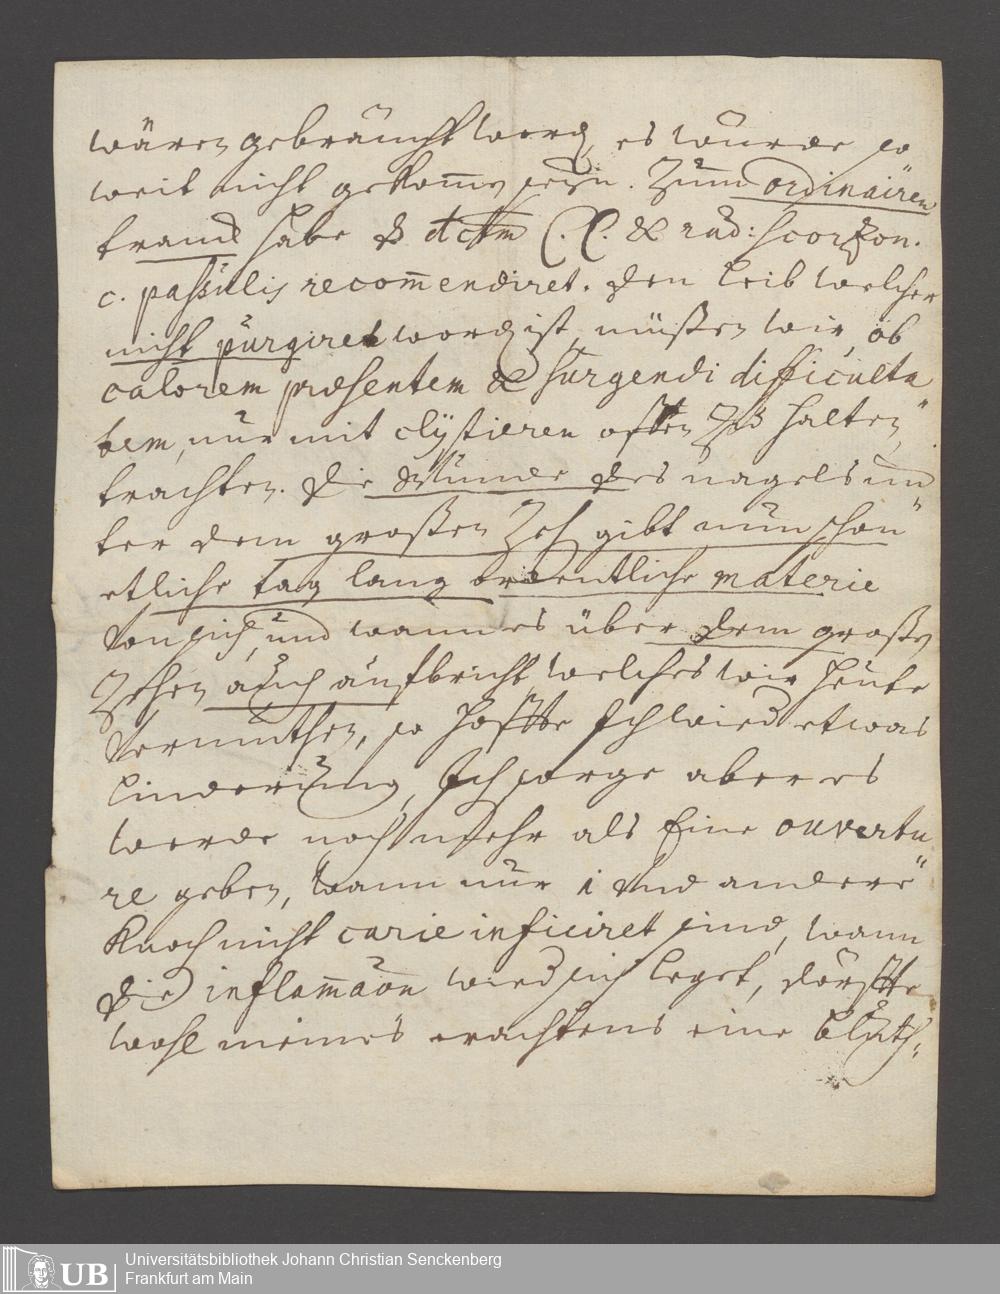 wären gebraucht word, es würde so
weit nicht gekom̄en seyn. Zum ordinairen
tranck habe dctum C. C. & rad: scorzon.
c. passulis recom̄endiret. den Leib welcher
nicht purgiret word ist, müßen wir, ob
calorem præsentem & surgendi difficulta
tem, nur mit clystieren offen zu halten
trachten. die Wunde des nagels un
ter dem großen Zeh gibt nun schon
etliche tag lang ordentliche materie
von sich, und wann es über dem großen
Zehen auch aufbricht welches wir heute
vermuthen, so hoffte Ich wird etwas
linderung, Ich sorge aber es
werde noch mehr als Eine ouvertu
re geben, wann nur i und andere
Knoch nicht carie inficiret sind, wann
die inflam̄aon wird sich leget, dörffte
wohl meines erachtens eine Bluth-
UB
Universitätsbibliothek Johann Christian Senckenberg
Frankfurt am Main